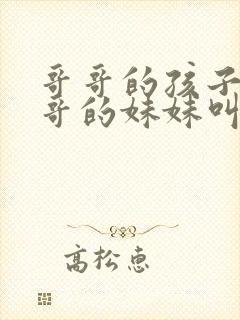 哥哥的孩子
哥的妹妹叫
高松惠